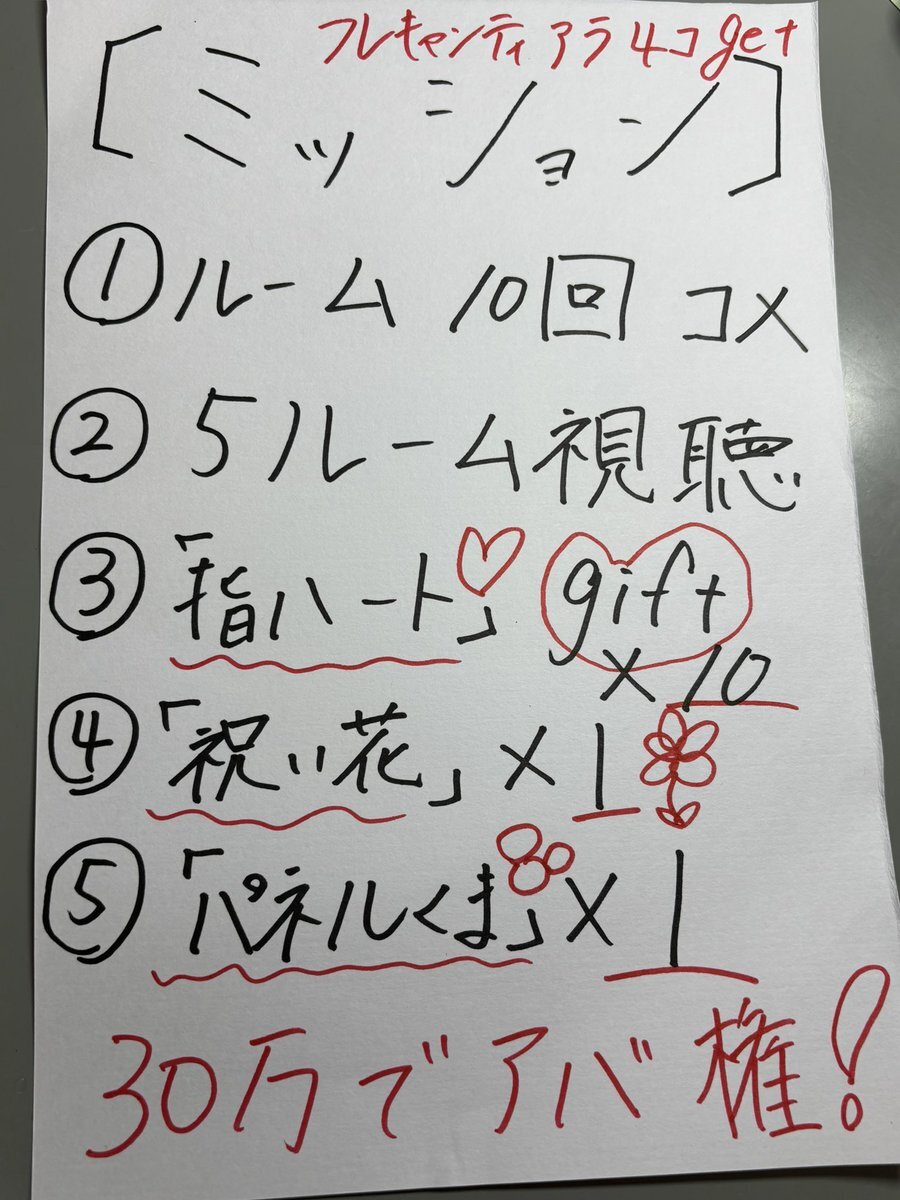 フレキャンティアラ4コget
[ミッション]
① ルーム 10回 コメ
② 5ルーム視聴
③ 「指ハート」 gift
×10
④ 「祝い花」×1
⑤ 「パネルくま」×1
30万でアバ権!